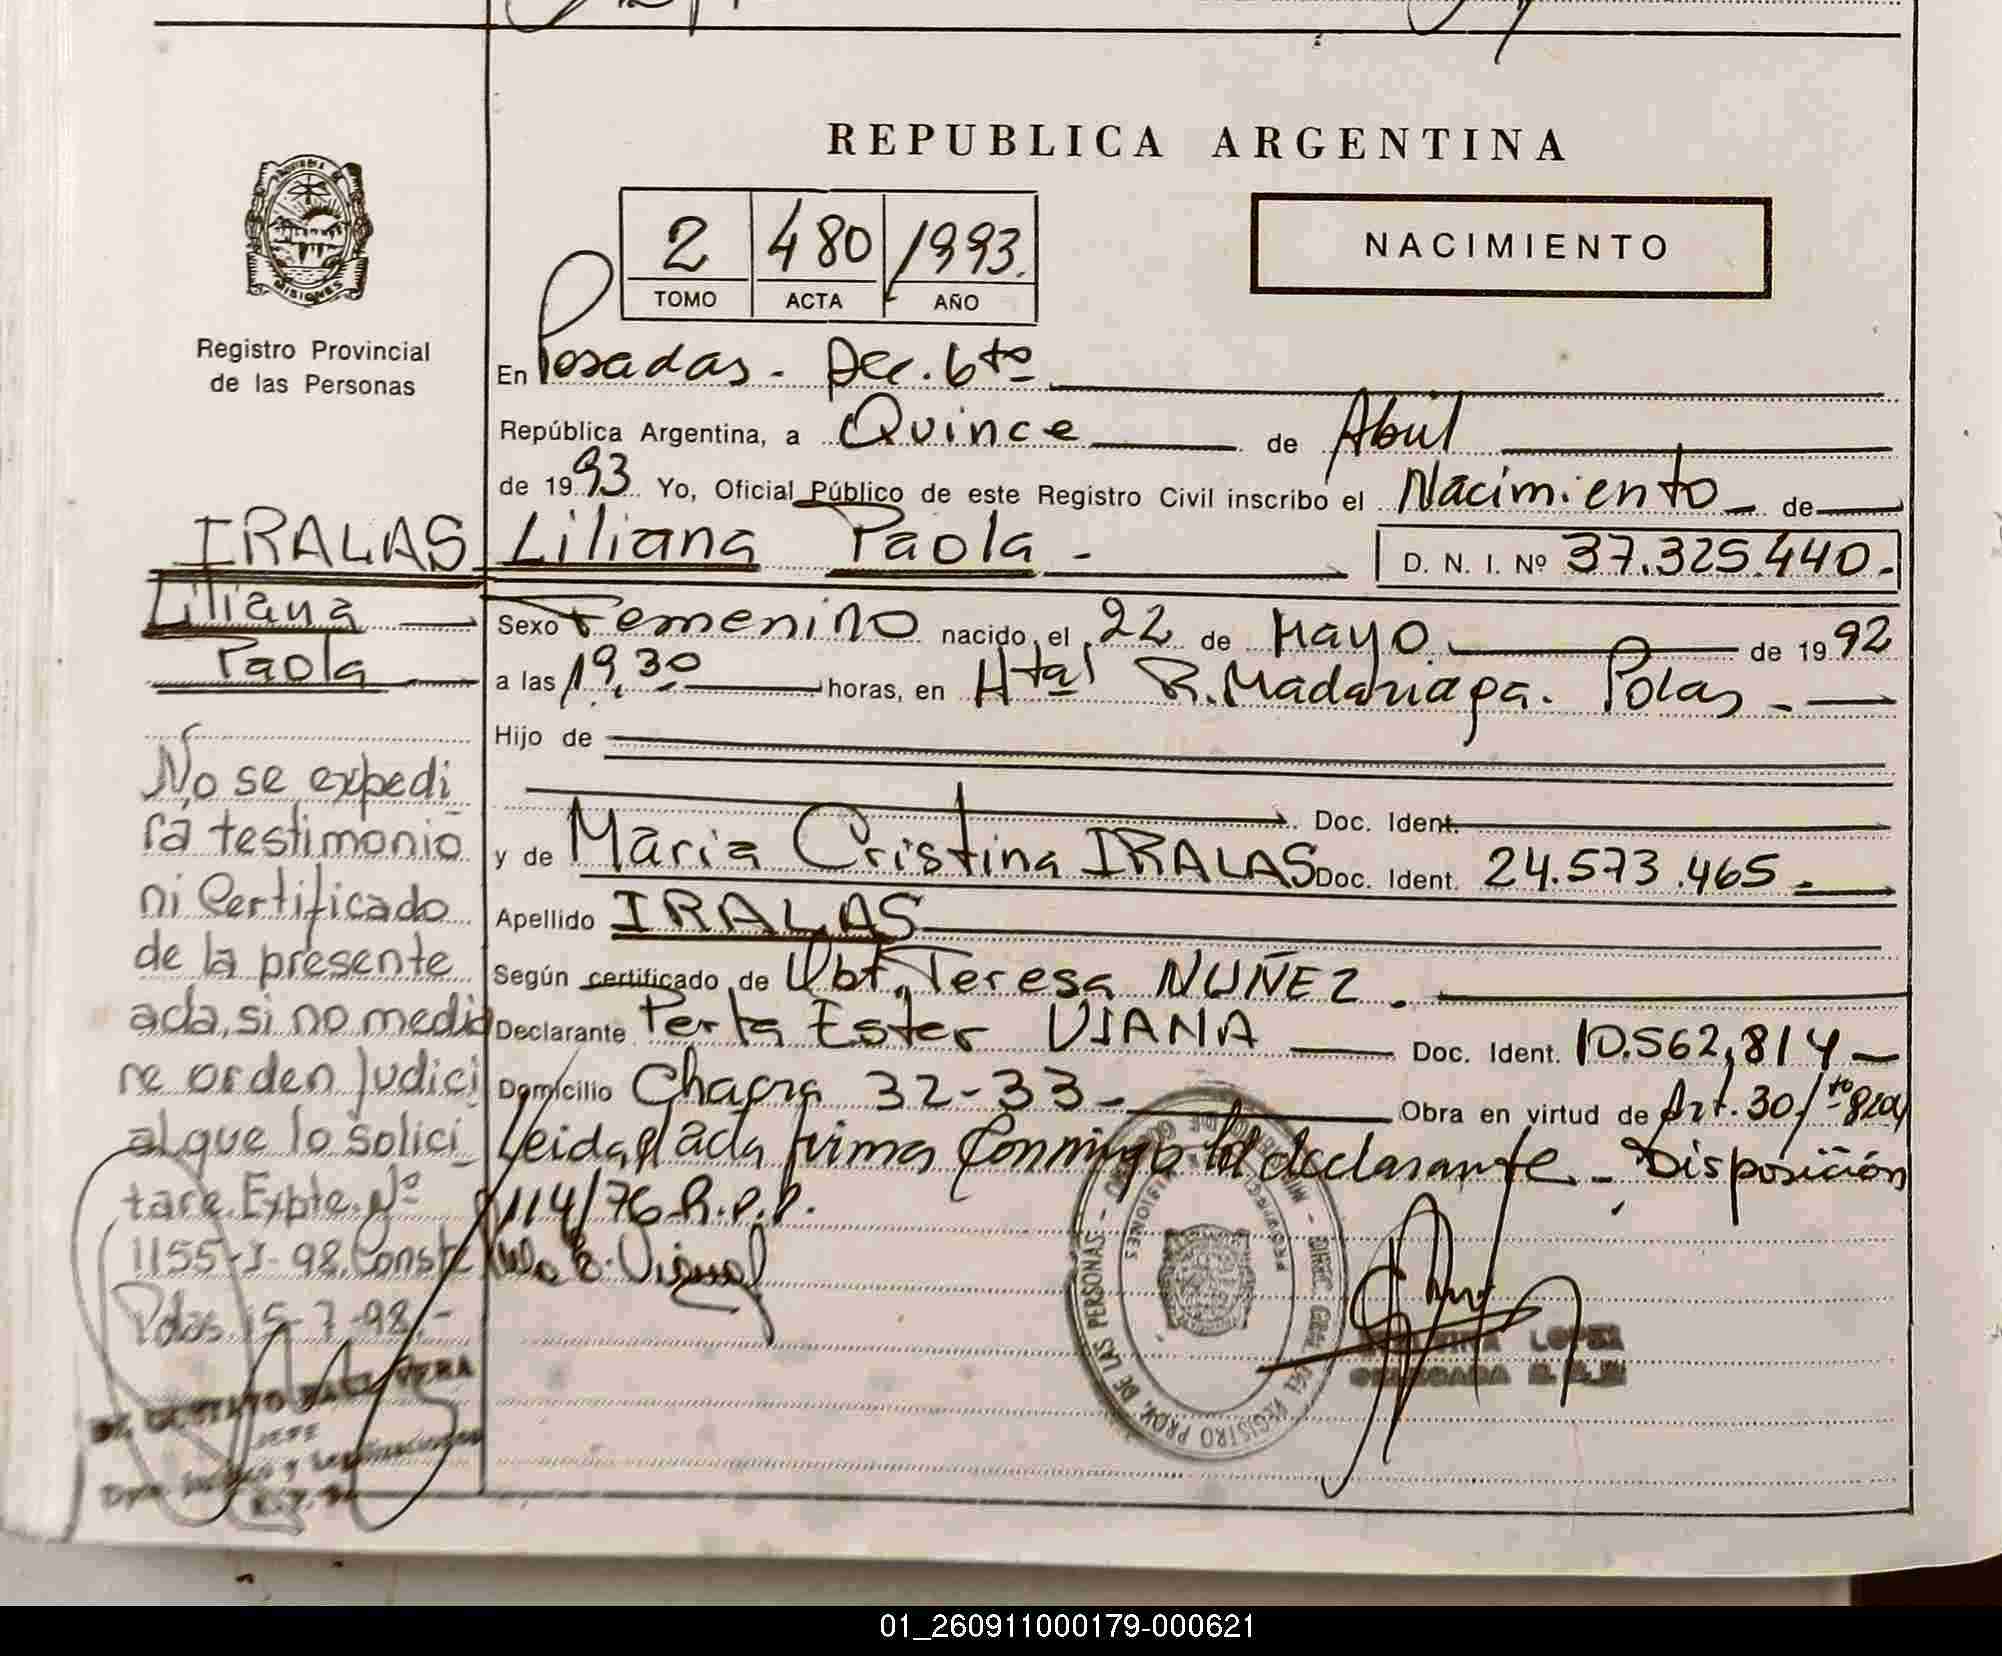 REPUBLICA ARGENTINA
NACIMIENTO
2 480 1993.
TOMO ACTA AÑO
PROVINCIA DE
MISIONES
Registro Provincial
de las Personas
En Posadas. Del. 6to
República Argentina, a Quince de Abril
de 1993 Yo, Oficial Público de este Registro Civil inscribo el Nacimiento de
Liliana Paola - D. N. I. Nº 37.325.440.-
Sexo Femenino nacido el 22 de Mayo. de 1992
a las 19,30 horas, en Htal R. Madariaga. Pdas -
Hijo de
Doc. Ident.
y de Maria Cristina IRALAS Doc. Ident. 24.573.465.-
Apellido IRALAS
Según certificado de Obt. Teresa NUÑEZ.
Declarante Perla Ester VIANA Doc. Ident. 10.562,814-
Domicilio Chacra 32-33- Obra en virtud de Art. 30/
Leida el acta firma conmigo el declarante - Disposición
114/76 R.P.P.
IRALAS
Liliana
Paola
No se expedi
rá testimonio
ni Certificado
de la presente
acta, si no media
re orden Judici
al que lo solici
tare. Expte. Nº
1155-I-98. Conste
Pdas 15-7-98.-
DR. GUSTAVO RAUL VERA
JEFE
Dpto. y Legalizaciones
R.P.P.
DIREC. GRAL. DEL REGISTRO PROV. DE LAS PERSONAS
PROVINCIA MISIONES
LOPEZ
DELEGADA
01_260911000179-000621